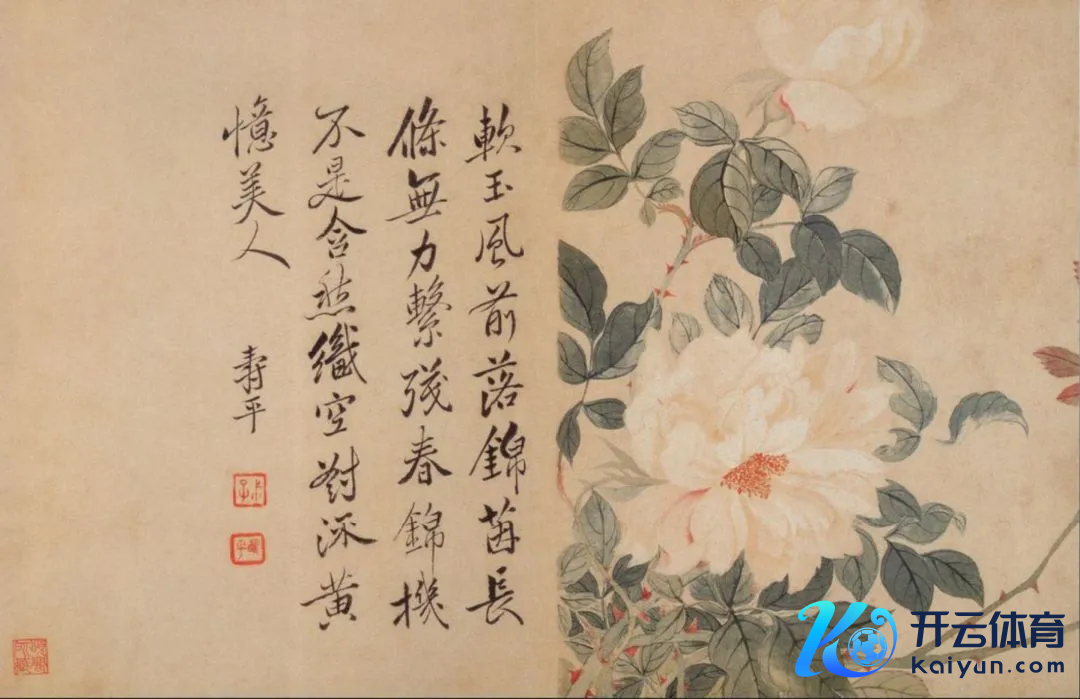 軟玉風前落錦茵長
條無力繫殘春錦機
不是含愁織空對流黃
憶美人
壽平
开云体育
kaiyun.com